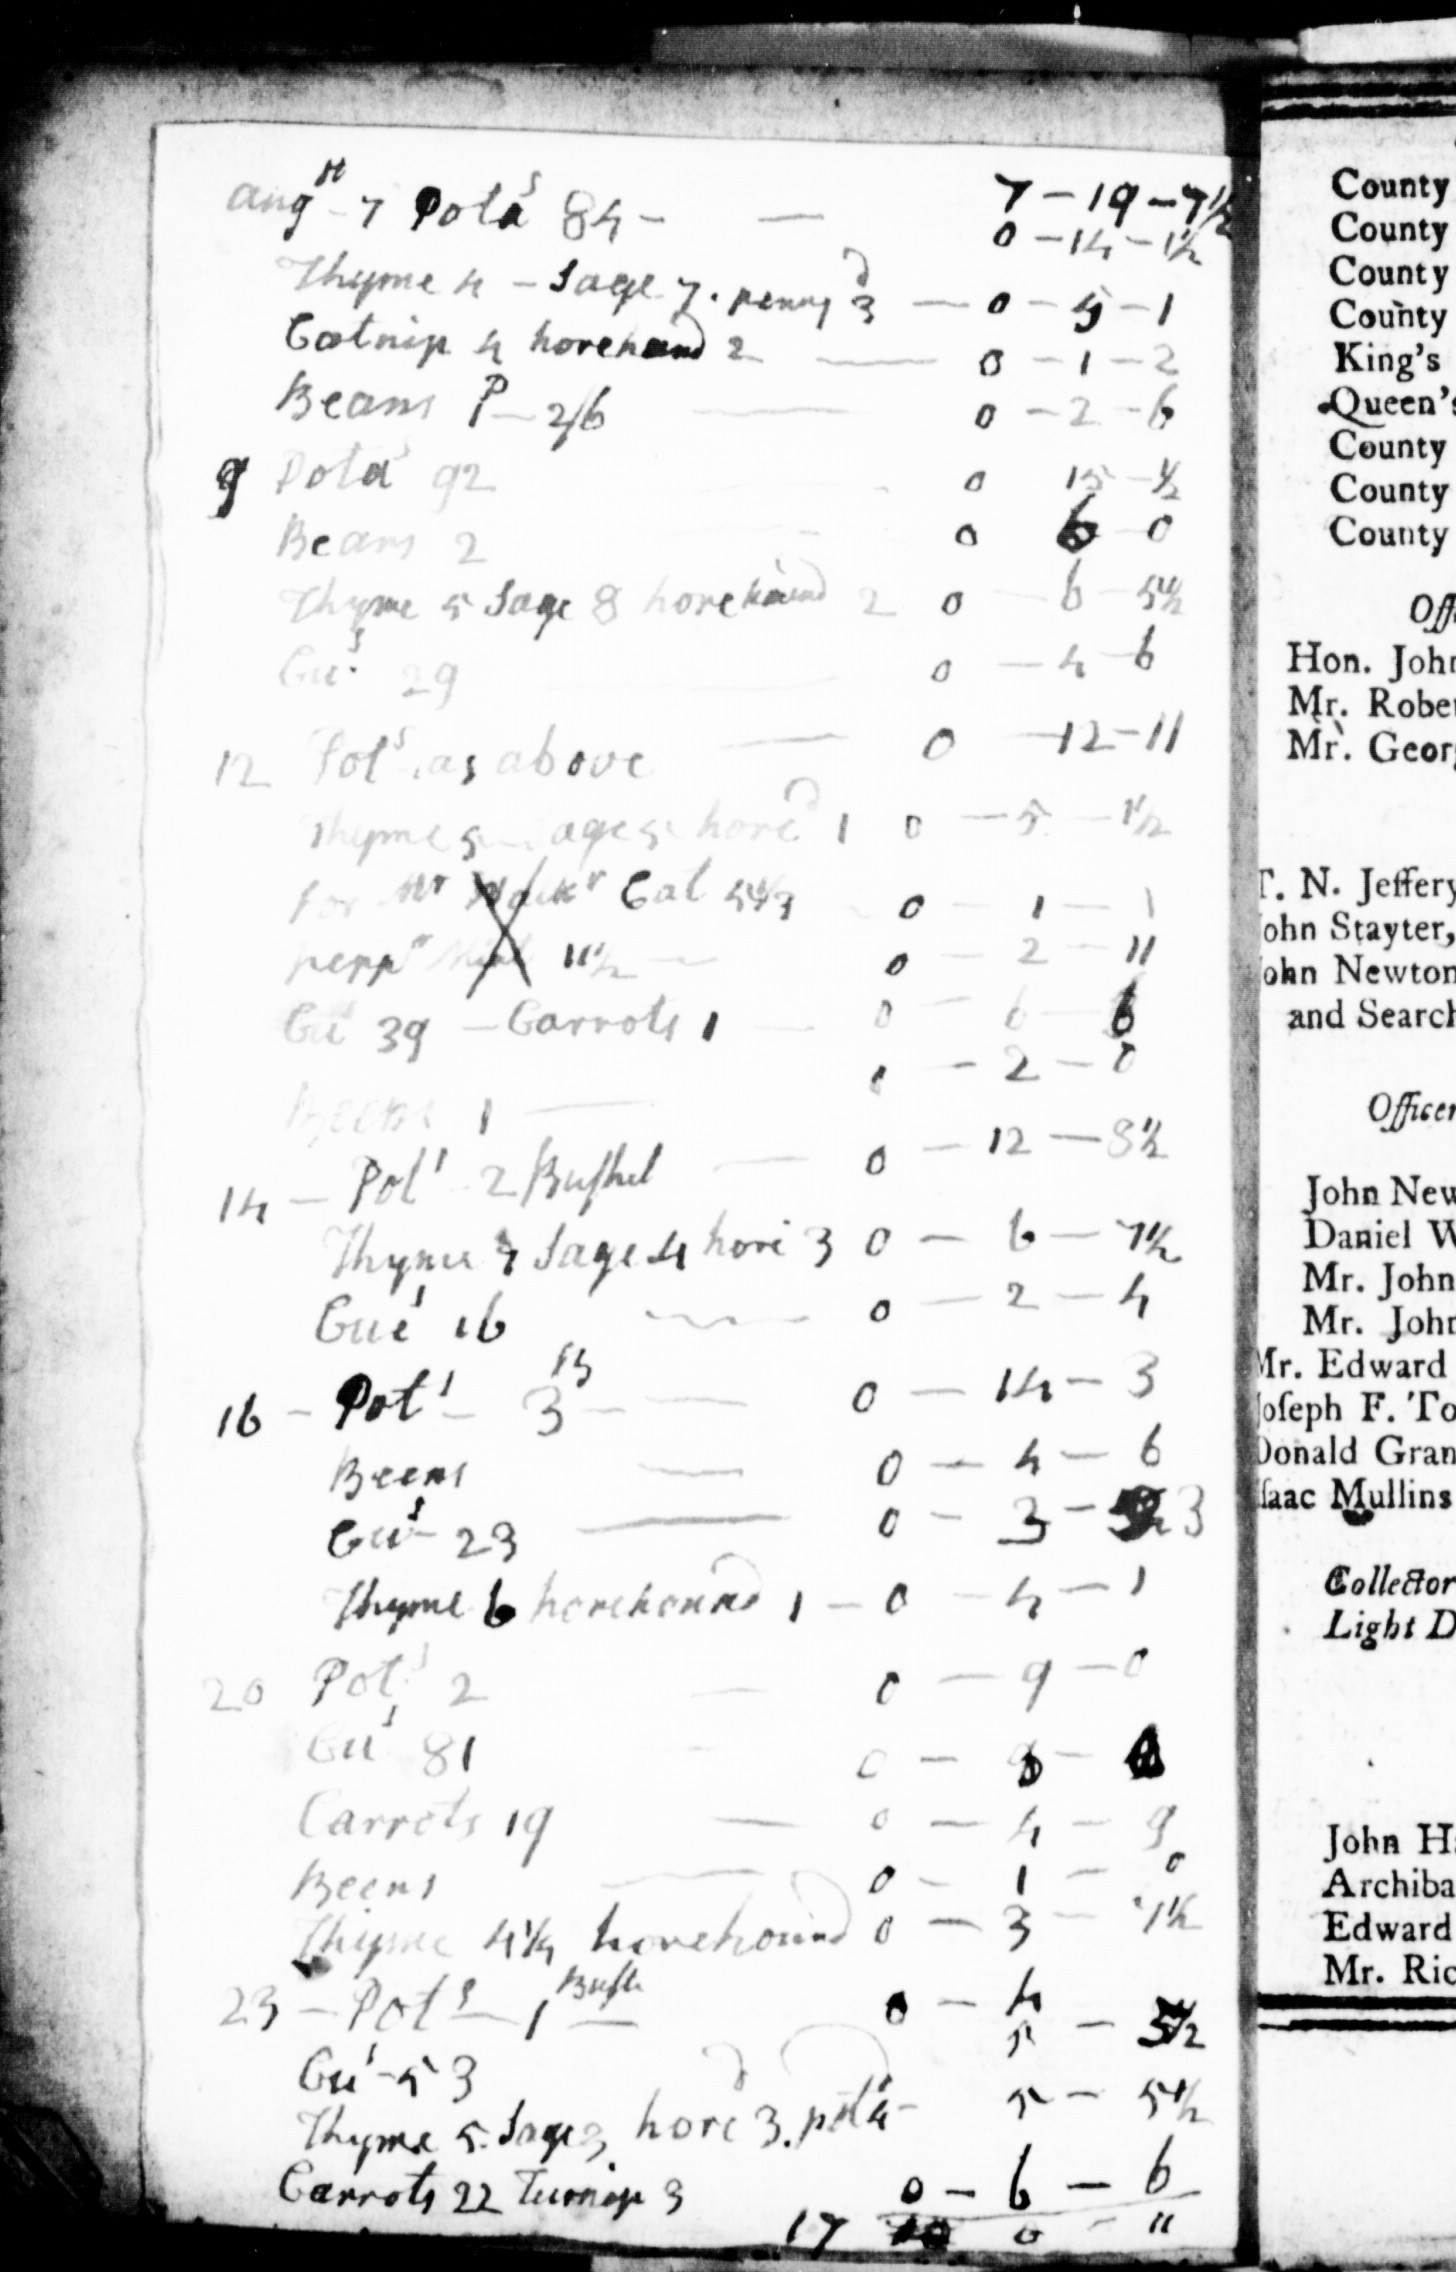 7 - 19 - 7½
augst - 7 Potas 84 - — 0 - 14 - 1½
Thyme 4 - Sage 7. pennyd 3 — 0 - 5 - 1
Catnip 4 horehound 2 — 0 - 1 - 2
Beans P - 2/6 — 0 - 2 - 6
9 Potas 92 — 0 15 - ½
Beans 2 — 0 6 - 0
Thyme 5 Sage 8 horehound 2 0 - 6 - 5½
Cus 29 — 0 - 4 6
12 Pots as above — 0 - 12 - 11
Thyme 5 - Sage 5 hored 1 0 - 5 - 1½
for Mr Cal 0 - 1 - 1
pepr Mint 11½ — 0 - 2 - 11
Cus 39 - Carrots 1 — 0 - 6 6
0 - 2 - 0
Beens 1 —
14 - Pots - 2 Bushel — 0 - 12 - 8½
Thyme 7 Sage 4 hore 3 0 - 6 - 7½
Cues 16 — 0 - 2 - 4
16 - Pots - 3 — 0 - 14 - 3
Beens — 0 - 4 - 6
Cus - 23 — 0 - 3 - 3
Thyme 6 horehound 1 - 0 - 4 - 1
20 Pots 2 — 0 - 9 - 0
Cus 81 — 0 -
Carrots 19 — 0 - 4 - 9
Beens — 0 - 1 - 0
Thyme 4¼ horehound 0 - 3 - 7½
23 - Pots - 1 Bush — 0 - 4
Cus - 53 5 -
Thyme 5. Sage 3 hored 3. 5 - 5½
Carrots 22 Turnip 3 0 - 6 - 6
17 0 - "
County
County
County
County
King's
Queen's
County
County
County
Hon. John
Mr.
Mr.
T. N. Jeffery
John Stayter,
John Newton
and Search
John New
Daniel W
Mr. John
Mr. John
Mr. Edward
Joseph F. To
Donald Gran
Isaac Mullins
Collector
Light D
John H
Archiba
Edward
Mr. Ric